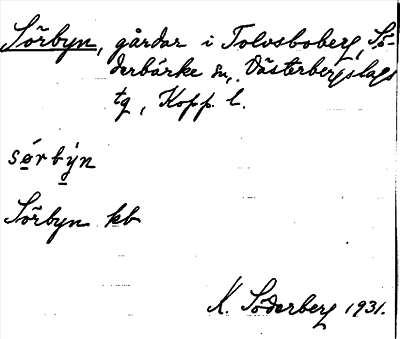 Sörbyn, gårdar i Tolvsboberg, Sö-
derbärke sn, Västerbergslags
tg, Kopp. l.
sørbýn
Sörbyn kb
K. Söderberg 1931.